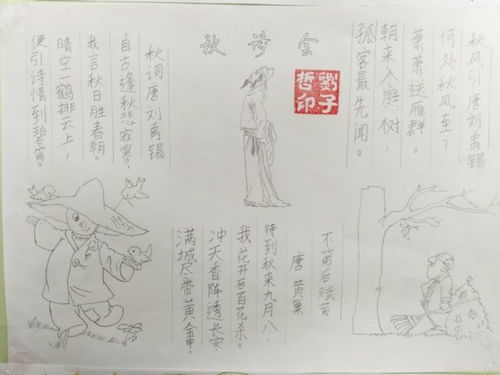 秋诗会
秋风引唐刘禹锡
何处秋风至?
萧萧送雁群。
朝来入庭树,
孤客最先闻。
劉子
哲印
秋词唐刘禹锡
自古逢秋悲寂寥,
我言秋日胜春朝。
晴空一鹤排云上,
便引诗情到碧宵。
不第后赋菊
唐黄巢
待到秋来九月八,
我花开后百花杀。
冲天香阵透长安
满城尽带黄金甲。